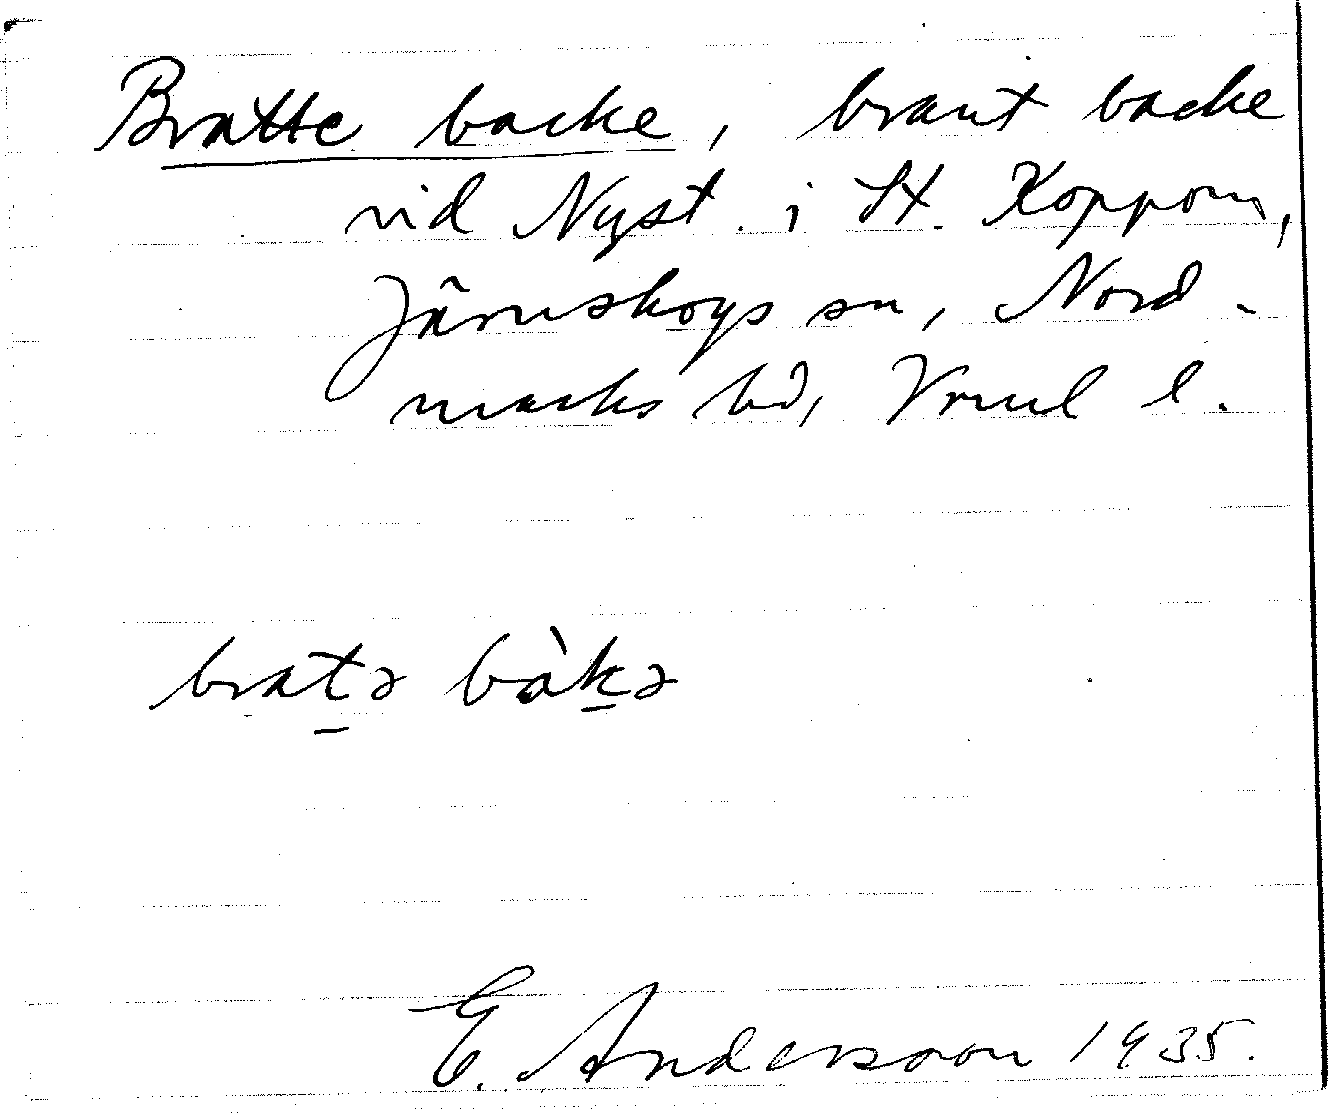 Bratte backe, brant backe
vid Nyst. i St. Koppom,
Järnskogs sn, Nord-
marks hd, Vrml l.
brat̲ə bàk̲ə
E. Andersson 1935.